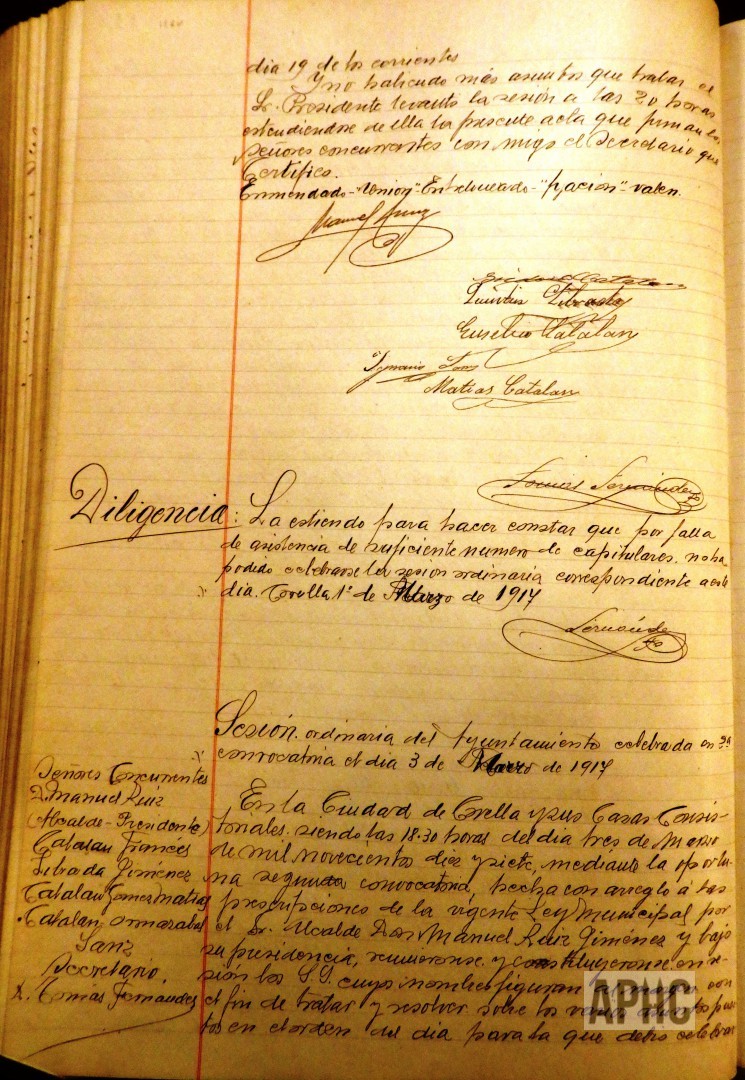 dia 19 de los corrientes
Y no habiendo más asuntos que tratar el
Sr. Presidente levantó la sesión a las 20 horas
estendiendose de ella la presente acta que firman los
Señores concurrentes con migo el Secretario que
Certifico.
Enmendado-"Union"-Entrelineado-"pación"-valen.
Manuel Ruiz
Catalan
Librada
Eusebio Catalan
Ignacio Sanz
Matias Catalan
Tomás Fernández
Diligencia: La estiendo para hacer constar que por falta
de asistencia de suficiente numero de capitulares, no ha
podido celebrarse la sesion ordinaria correspondiente a este
dia. Corella 1º de Marzo de 1917
Fernández
Sesión ordinaria del Ayuntamiento celebrada en 2ª
convocatoria el dia 3 de Marzo de 1917
Señores Concurrentes
D. Manuel Ruiz
(Alcalde-Presidente)
Catalan Francés
Librada Giménez
Catalan Gomez Matias
Catalan Ormazabal
Sanz
Secretario,
D. Tomás Fernandez
En la Ciudad de Corella y sus Casas Consis-
toriales, siendo las 18.30 horas del dia tres de Marzo
de mil novecientos diez y siete, mediante la oportu-
na segunda convocatoria, hecha con arreglo á las
prescripciones de la vigente Ley Municipal por
el Sr. Alcalde Don Manuel Ruiz Giménez y bajo
su presidencia, reunieronse y constituyeronse en se-
sión los S.S. cuyos nombres figuran al margen con
el fin de tratar y resolver sobre los varios asuntos pues
tos en el orden del dia para la que debio celebrar
APHC